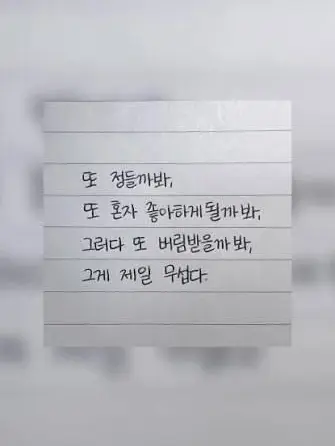 또 정들까봐,
또 혼자 좋아하게될까봐,
그러다 또 버림받을까봐,
그게 제일 무섭다.